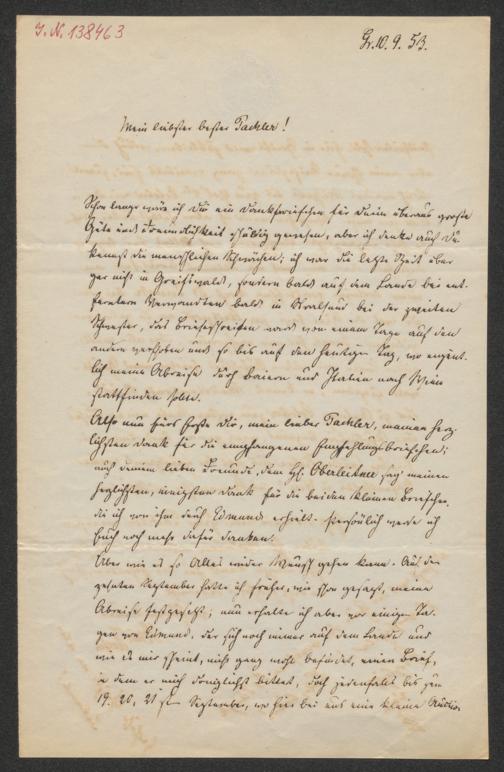 I. N. 138463
Gr. 10. 9. 53.
Mein liebster bester Tackler!
Schon lange wäre ich Dir ein Dankbriefchen für Deine überaus große
Güte und Freundlichkeit schuldig gewesen, aber ich denke auch Du
kennst die menschlichen Schwächen; ich war die letzte Zeit über
gar nicht in Greifswald, sondern bald auf dem Lande bei ent-
fernteren Verwandten bald in Stralsund bei der zweiten
Schwester, das Briefschreiben ward von einem Tage auf den
andern verschoben und so bis auf den heutigen Tag, wo eigent-
lich meine Abreise durch Baiern und Italien nach Wien
stattfinden sollte.
Also nun fürs Erste Dir, mein lieber Tackler, meinen herz-
lichsten Dank für die empfangenen Empfehlungsbriefchen;
auch Deinem lieben Freunde, dem H. Oberleitner sag meinen
herzlichsten, innigsten Dank für die beiden kleinen Briefchen,
die ich von ihm durch Edmund erhielt. Persönlich werde ich
Euch noch mehr dafür danken.
Aber wie es so Alles wider Wunsch gehen kann. Auf den
zehnten September hatte ich früher, wie schon gesagt, meine
Abreise festgesetzt; nun erhalte ich aber vor einigen Ta-
gen von Edmund, der sich noch immer auf dem Lande und
wie es mir scheint, nicht ganz wohl befindet, einen Brief,
in dem er mich dringlichst bittet, doch jedenfalls bis zum
19. 20, 21 sten September, wo hier bei uns eine kleine Auction